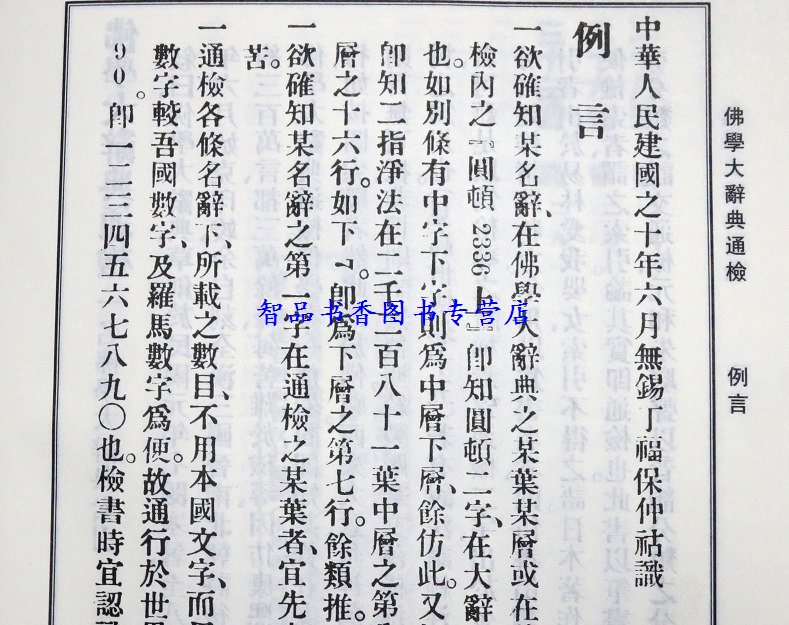 佛學大辭典通檢 例言
中華人民建國之十年六月無錫丁福保仲祜識
例言
一欲確知某名辭、在佛學大辭典之某葉某層或在
檢內之『圓頓 2336 上』卽知圓頓二字、在大辭
也。如別條有中字下字則爲中層下層、餘仿此。又
卽知二指淨法在一千二百八十 葉中層之第
層之十六行。如下 7。卽爲下層之第七行。餘類推。
一欲確知某名辭之第一字在通檢之某葉者、宜先
苦。
一通檢各條名辭下、所載之數目、不用本國文字、而
數字較吾國數字、及羅馬數字爲便。故通行於世
90。卽一二三四五六七八九〇也。檢書時宜認
智品书香图书专营店